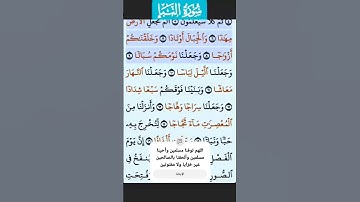 سُورَةُ النَّبَإِ
ثُمَّ كَلَّا سَيَعْلَمُونَ ۝ أَلَمْ نَجْعَلِ الْأَرْضَ
مِهَٰدًا ۝ وَالْجِبَالَ أَوْتَادًا ۝ وَخَلَقْنَٰكُمْ
أَزْوَٰجًا ۝ وَجَعَلْنَا نَوْمَكُمْ سُبَاتًا ۝
وَجَعَلْنَا الَّيْلَ لِبَاسًا ۝ وَجَعَلْنَا النَّهَارَ
مَعَاشًا ۝ وَبَنَيْنَا فَوْقَكُمْ سَبْعًا شِدَادًا
۝ وَجَعَلْنَا سِرَاجًا وَهَّاجًا ۝ وَأَنزَلْنَا مِنَ
الْمُعْصِرَٰتِ مَآءً ثَجَّاجًا ۝ لِّنُخْرِجَ بِهِ
حَبًّا وَنَبَاتًا ۝ إِنَّ يَوْمَ
الْفَصْلِ يُنفَخُ فِي
الصُّورِ وَفُتِحَتِ
اللهم توفنا مسلمين وأحينا
مسلمين وألحقنا بالصالحين
غير خزايا ولا مفتونين